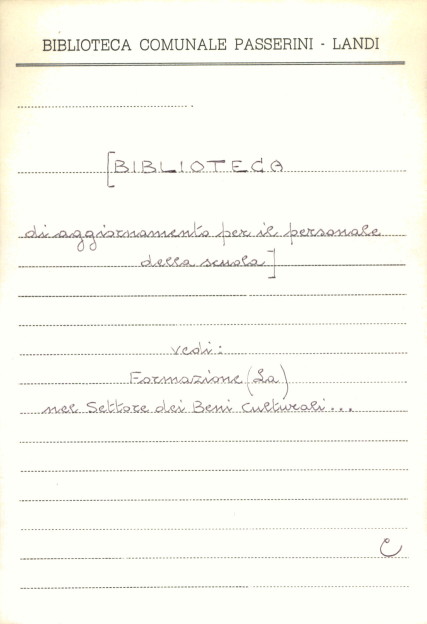 BIBLIOTECA COMUNALE PASSERINI - LANDI
[BIBLIOTECA
di aggiornamento per il personale
della scuola]
vedi:
Formazione (La)
nel Settore dei Beni Culturali...
C